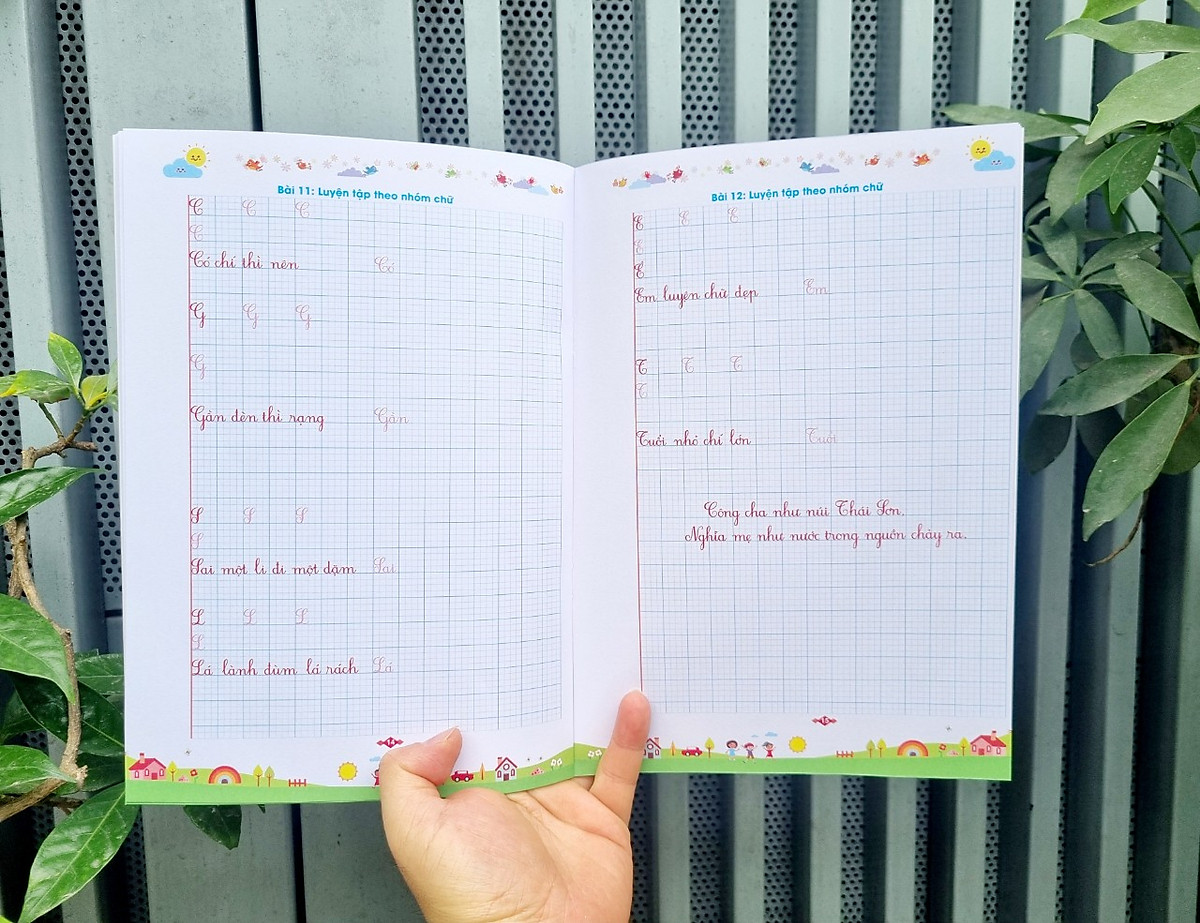 Bài 11: Luyện tập theo nhóm chữ
C C C
C
Có chí thì nên Có
G G G
G
Gần đèn thì rạng Gần
S S S
S
Sai một li đi một dặm Sai
L L L
L
Lá lành đùm lá rách Lá
14
Bài 12: Luyện tập theo nhóm chữ
E E E
E
Ê
Em luyện chữ đẹp Em
T T T
T
Tuổi nhỏ chí lớn Tuổi
Công cha như núi Thái Sơn,
Nghĩa mẹ như nước trong nguồn chảy ra.
15